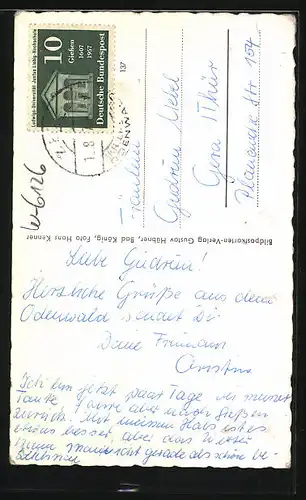 10
Gießen
1607
1957
Ludwigs-Universität Justus Liebig-Hochschule
Deutsche Bundespost
137
Fräulein
Gudrun
Gera /Thür
Str 154
W-6126
Bildpostkarten-Verlag Gustav Hübner, Bad König, Foto Hans Kenner
Liebe Gudrun!
Herzliche Grüße aus dem
Odenwald sendet Dir
Deine Freundin
Ich bin jetzt paar Tage bei meiner
Tante, fahre aber nach Gießen
zurück. Mit meinem Hals ist es
etwas besser, aber das Wetter
kann man nicht gerade als schön be-
zeichnen